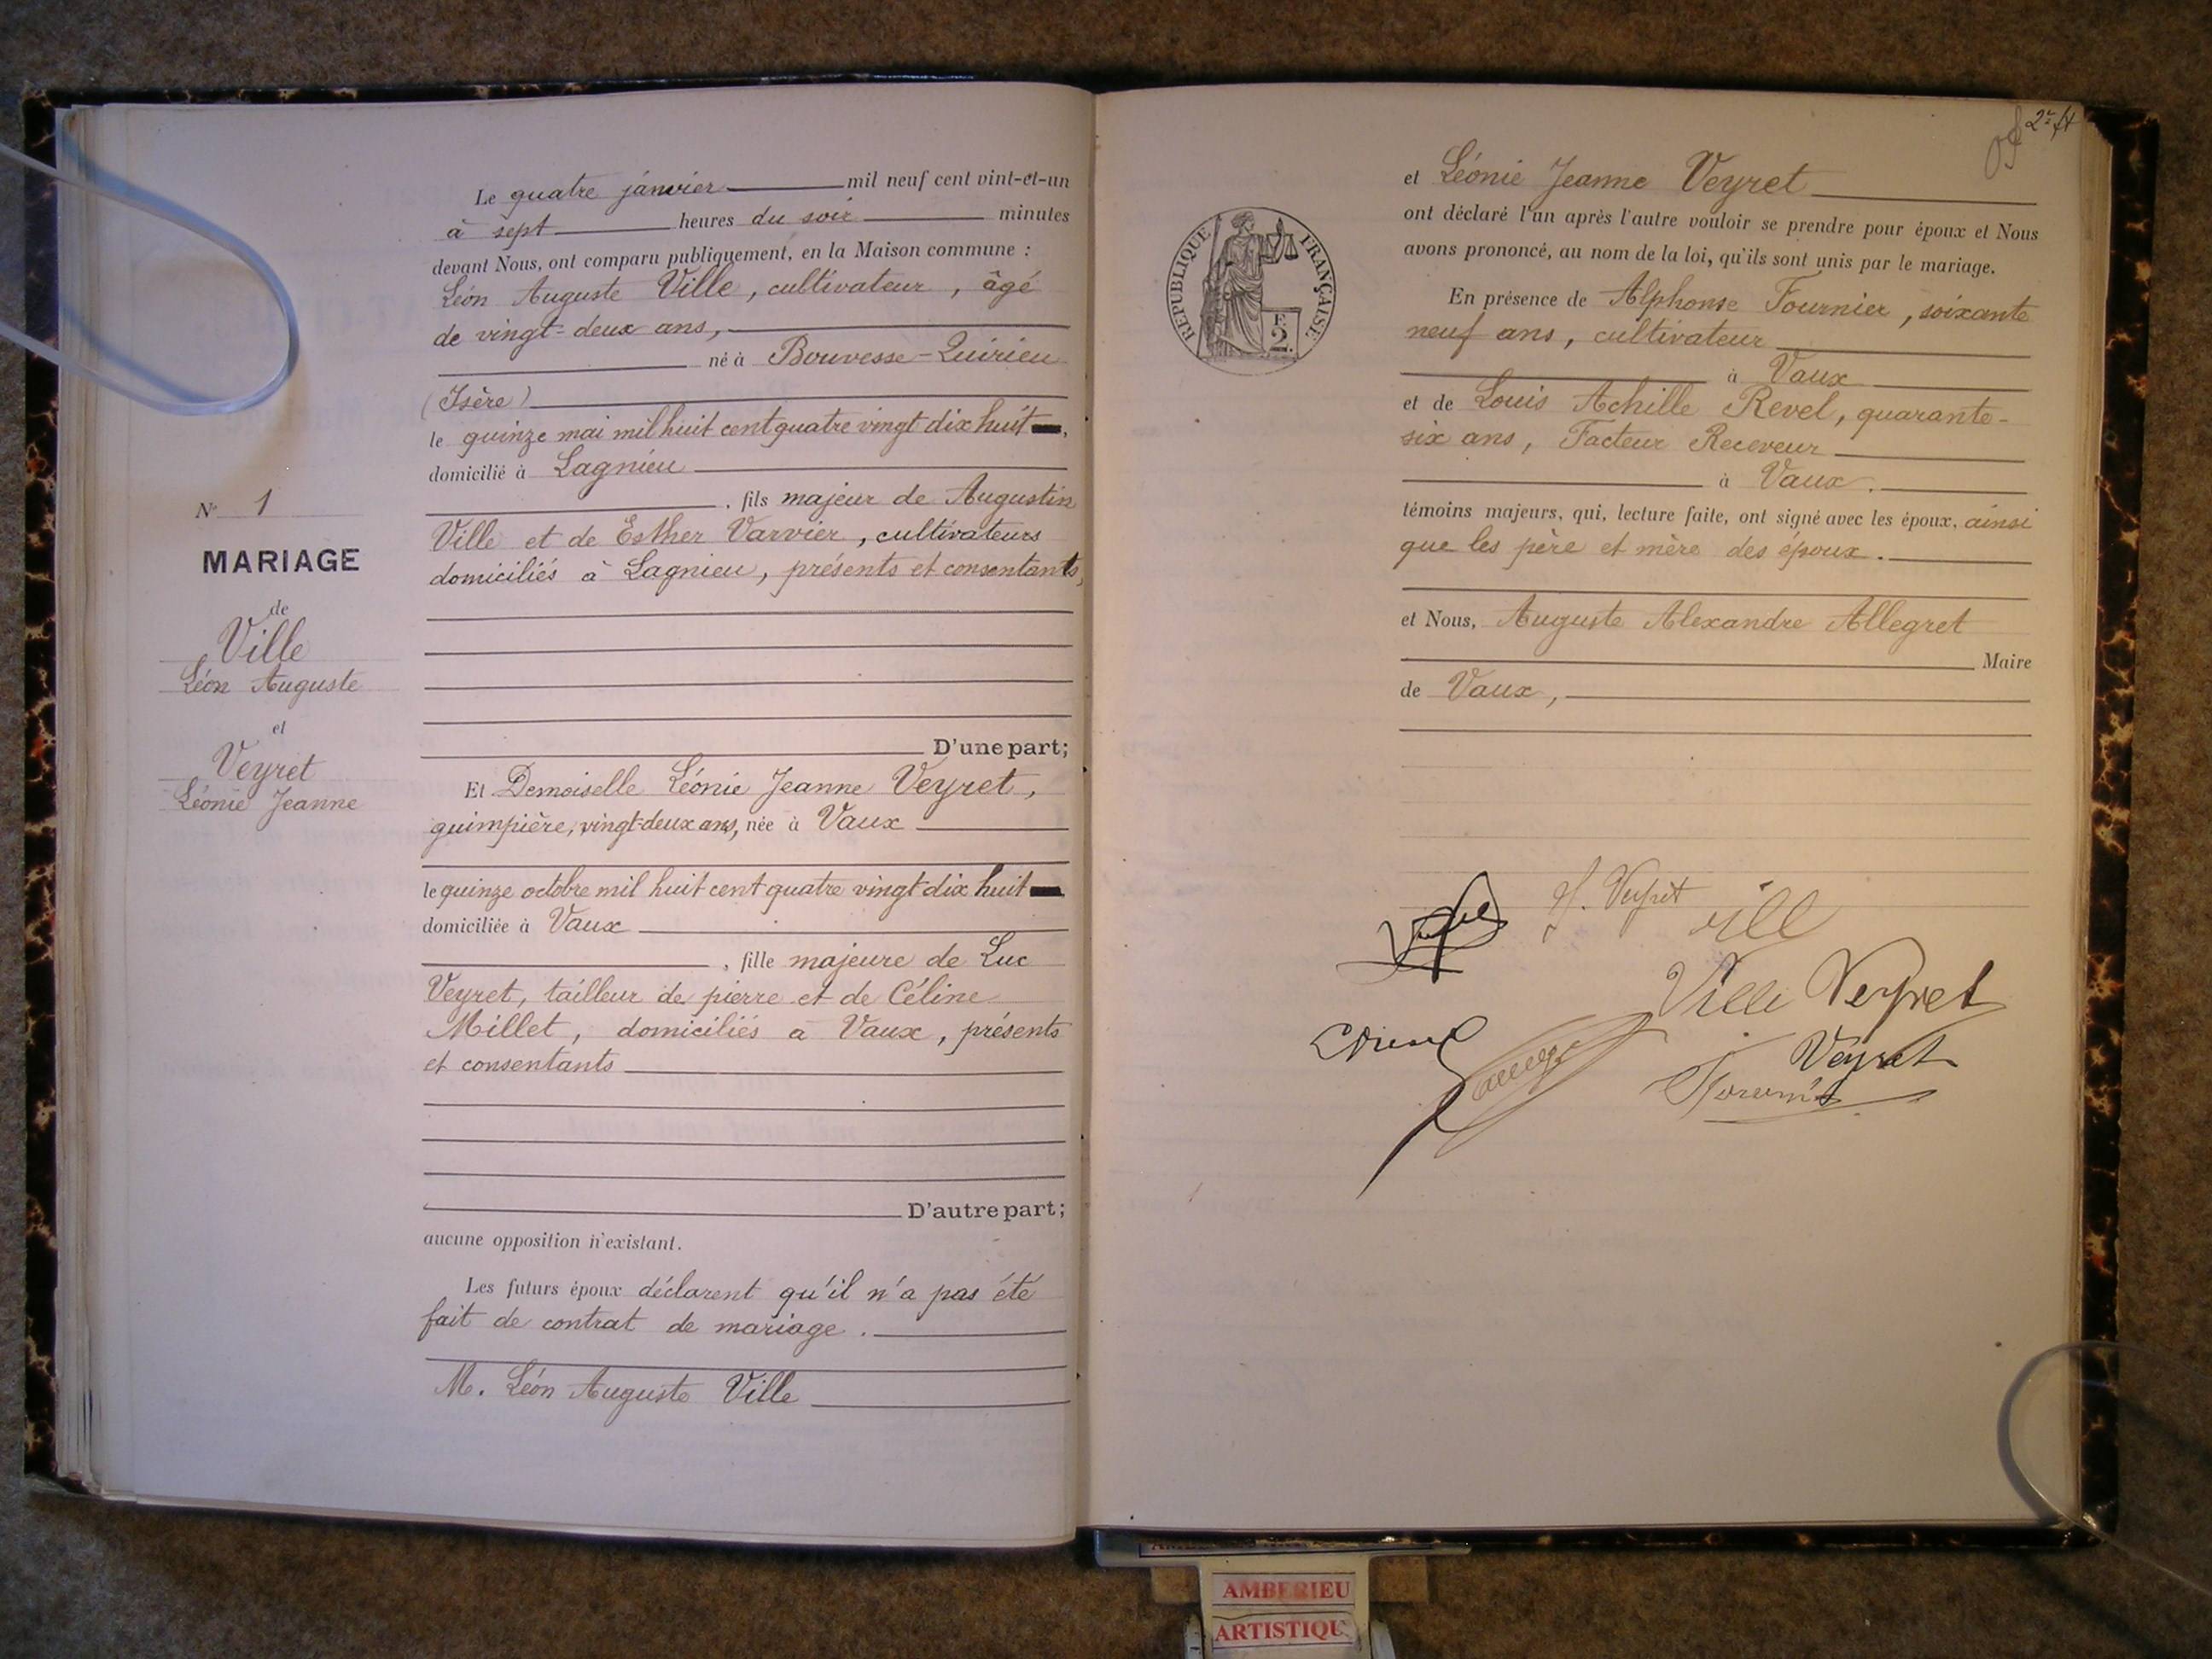 N° 1
MARIAGE
de
Ville
Léon Auguste
et
Veyret
Léonie Jeanne
Le quatre janvier mil neuf cent vint-et-un
à sept heures du soir minutes
devant Nous, ont comparu publiquement, en la Maison commune :
Léon Auguste Ville, cultivateur, âgé
de vingt-deux ans,
né à Bouvesse-Quirieu
(Isère)
le quinze mai mil huit cent quatre vingt dix huit,
domicilié à Lagnieu
, fils majeur de Augustin
Ville et de Esther Varvier, cultivateurs
domiciliés à Lagnieu, présents et consentants,
D'une part;
Et Demoiselle Léonie Jeanne Veyret,
guimpière, vingt-deux ans, née à Vaux
le quinze octobre mil huit cent quatre vingt dix huit
domiciliée à Vaux
, fille majeure de Luc
Veyret, tailleur de pierre et de Céline
Millet, domiciliés à Vaux, présents
et consentants
D'autre part;
aucune opposition n'existant.
Les futurs époux déclarent qu'il n'a pas été
fait de contrat de mariage.
M. Léon Auguste Ville
RÉPUBLIQUE FRANÇAISE
F.
2.
et Léonie Jeanne Veyret
ont déclaré l'un après l'autre vouloir se prendre pour époux et Nous
avons prononcé, au nom de la loi, qu'ils sont unis par le mariage.
En présence de Alphonse Fournier, soixante
neuf ans, cultivateur
à Vaux
et de Louis Achille Revel, quarante-
six ans, Facteur Receveur
à Vaux.
témoins majeurs, qui, lecture faite, ont signé avec les époux, ainsi
que les père et mère des époux.
et Nous, Auguste Alexandre Allegret
Maire
de Vaux,
Veyret
Ville Veyret
Veyret
AMBERIEU
ARTISTIQU